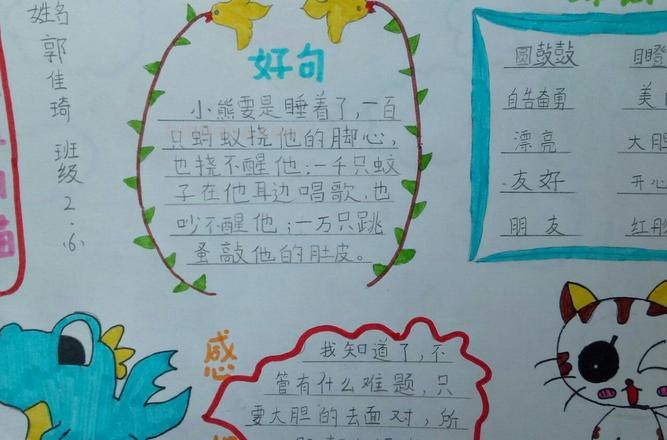 姓名 郭佳琦 班级2.6
好句
小熊要是睡着了,一百
只蚂蚁挠他的脚心,
也挠不醒他;一千只蚊
子在他耳边唱歌,也
吵不醒他;一万只跳
蚤敲他的肚皮。
圆鼓鼓
自告奋勇 美
漂亮 大胆
友好 开心
朋友 红彤
感
我知道了,不
管有什么难题,只
要大胆的去面对,所